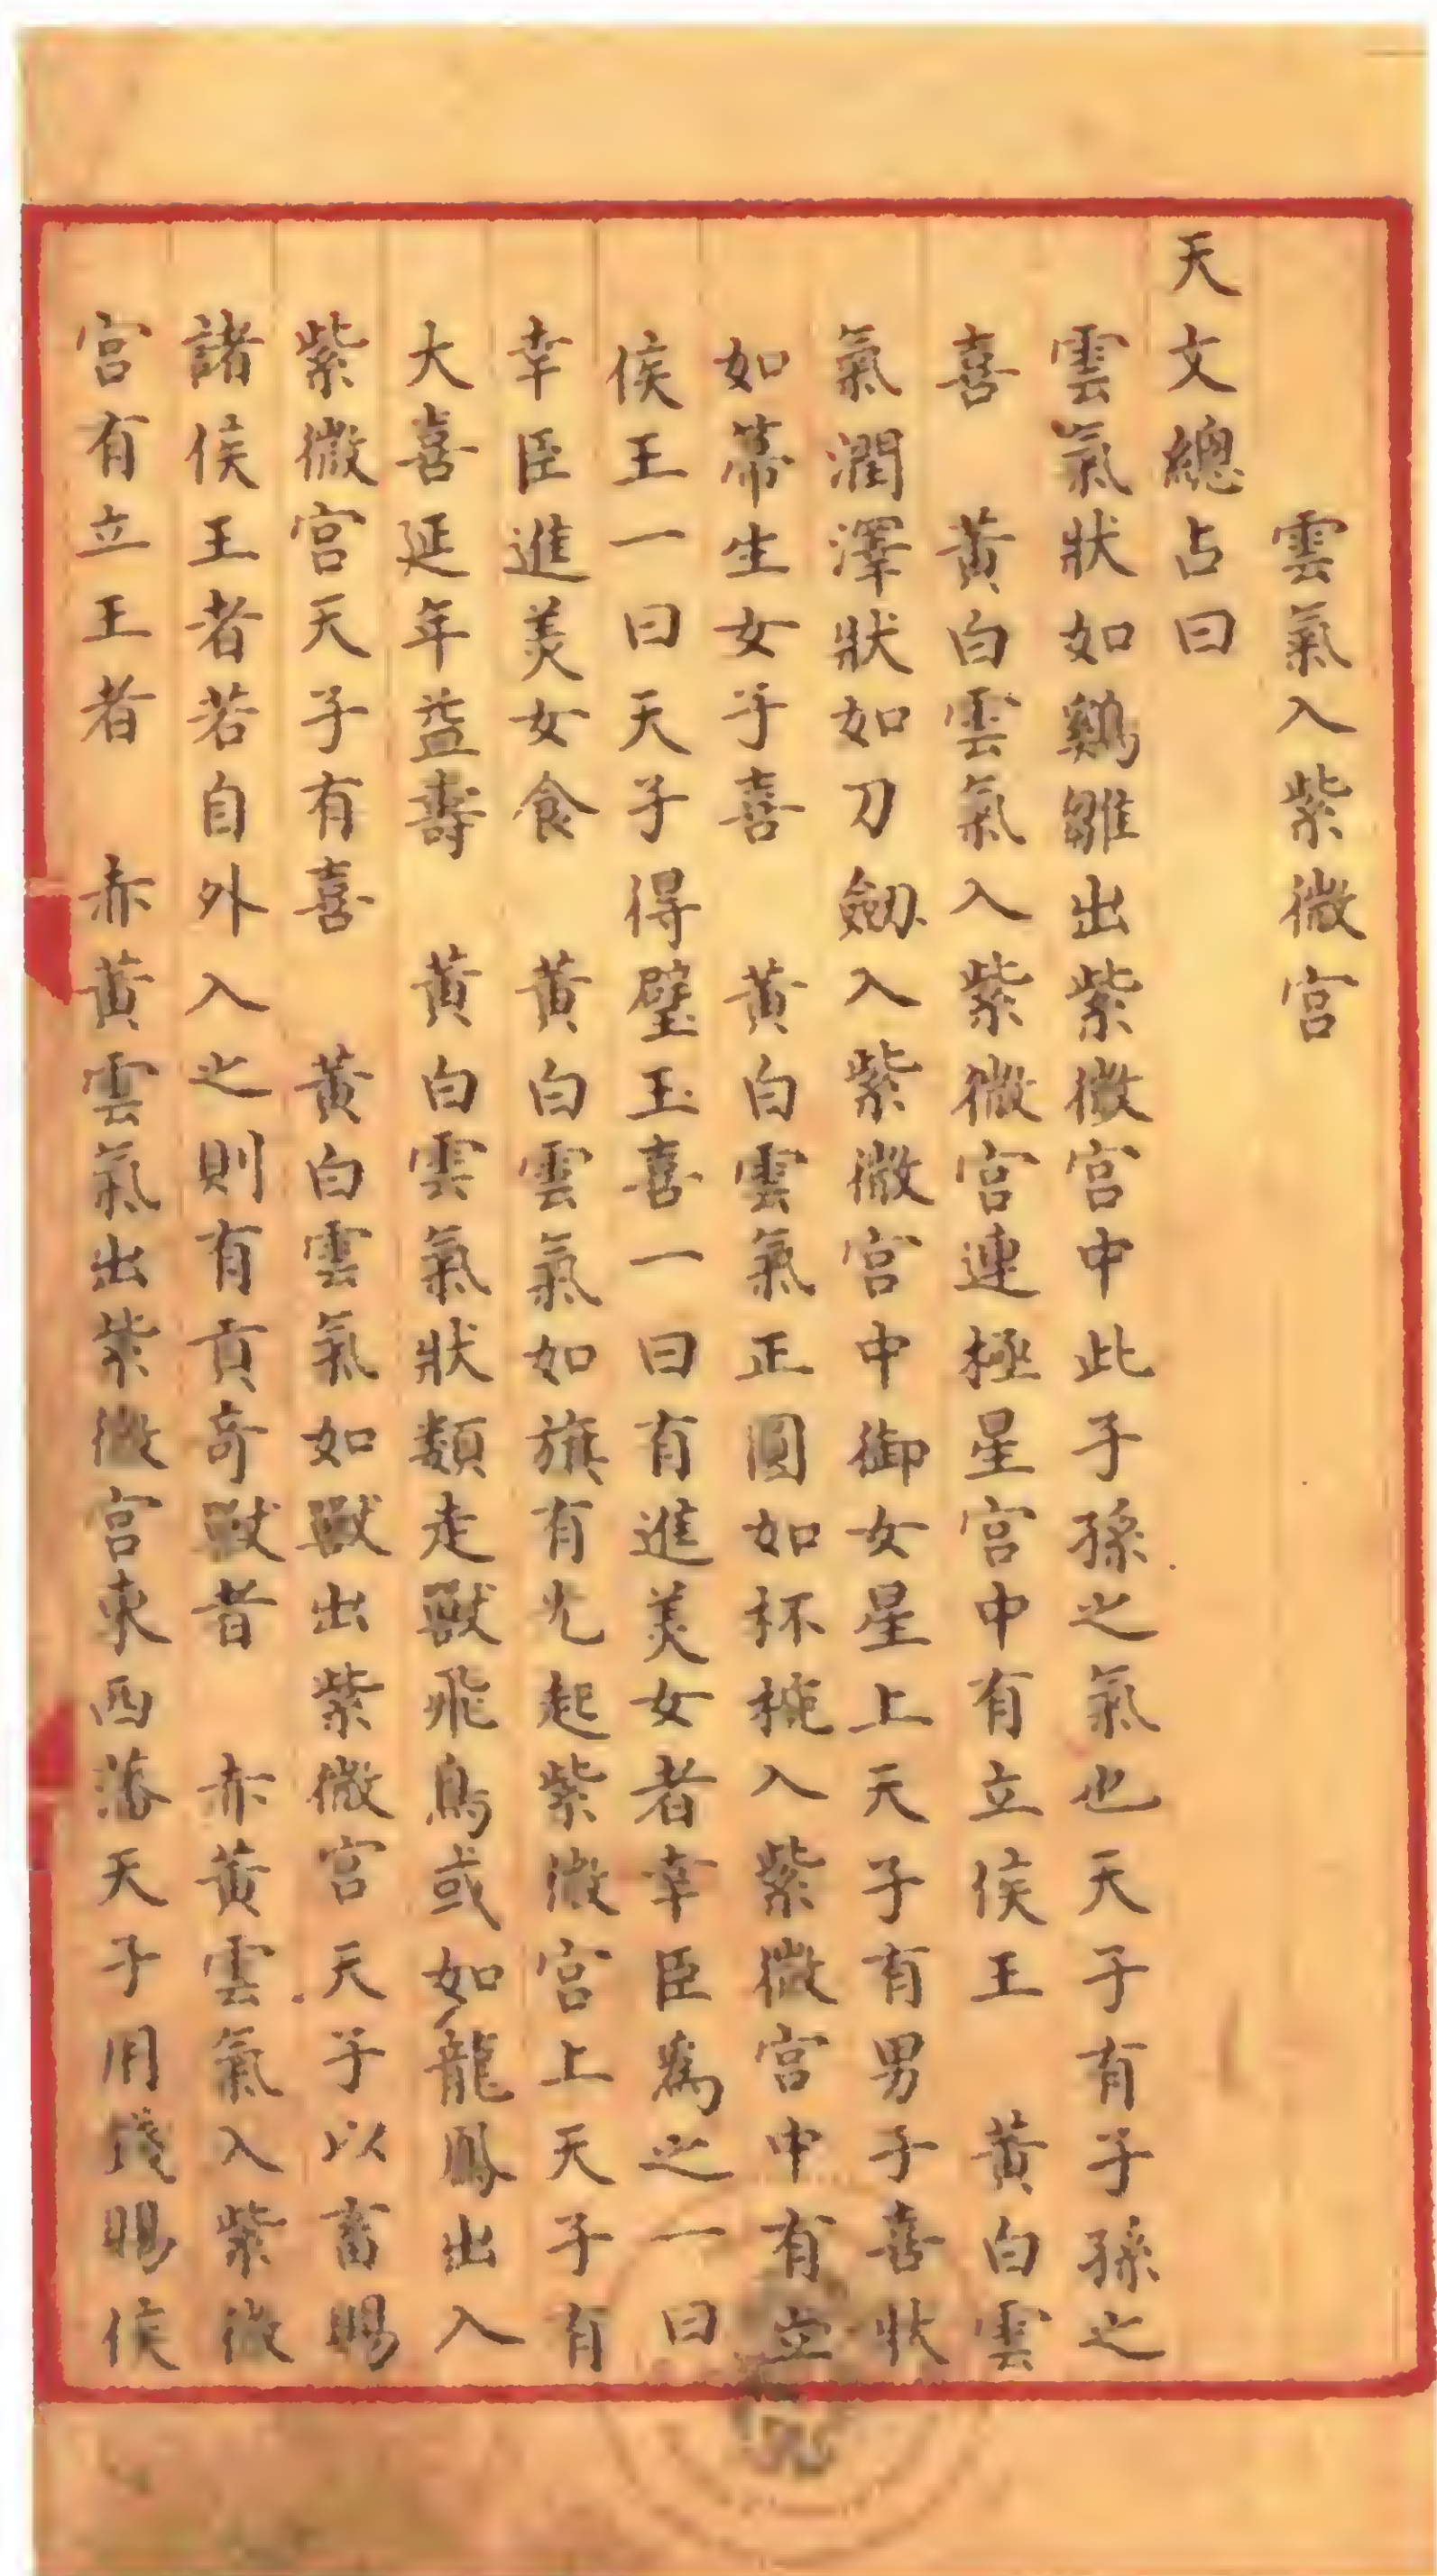 雲氣入紫微宮
天文總占曰
雲氣狀如鷄雛出紫微宮中此子孫之氣也天子有子孫之
喜　黃白雲氣入紫微宮連極星宮中有立侯王　黃白雲
氣潤澤狀如刀劒入紫微宮中御女星上天子有男子喜狀
如帶生女子喜　黃白雲氣正圓如杯椀入紫微宮中有立
侯王一曰天子得璧玉喜一曰有進美女者幸臣為之一曰
幸臣進美女食　黃白雲氣如旗有光起紫微宮上天子有
大喜延年益壽　黃白雲氣狀類走獸飛鳥或如龍鳳出入
紫微宮天子有喜　黃白雲氣如獸出紫微宮天子以畜賜
諸侯王者若自外入之則有貢奇獸者　赤黃雲氣入紫微
宮有立王者　赤黃雲氣出紫微宮東西藩天子用錢賜侯